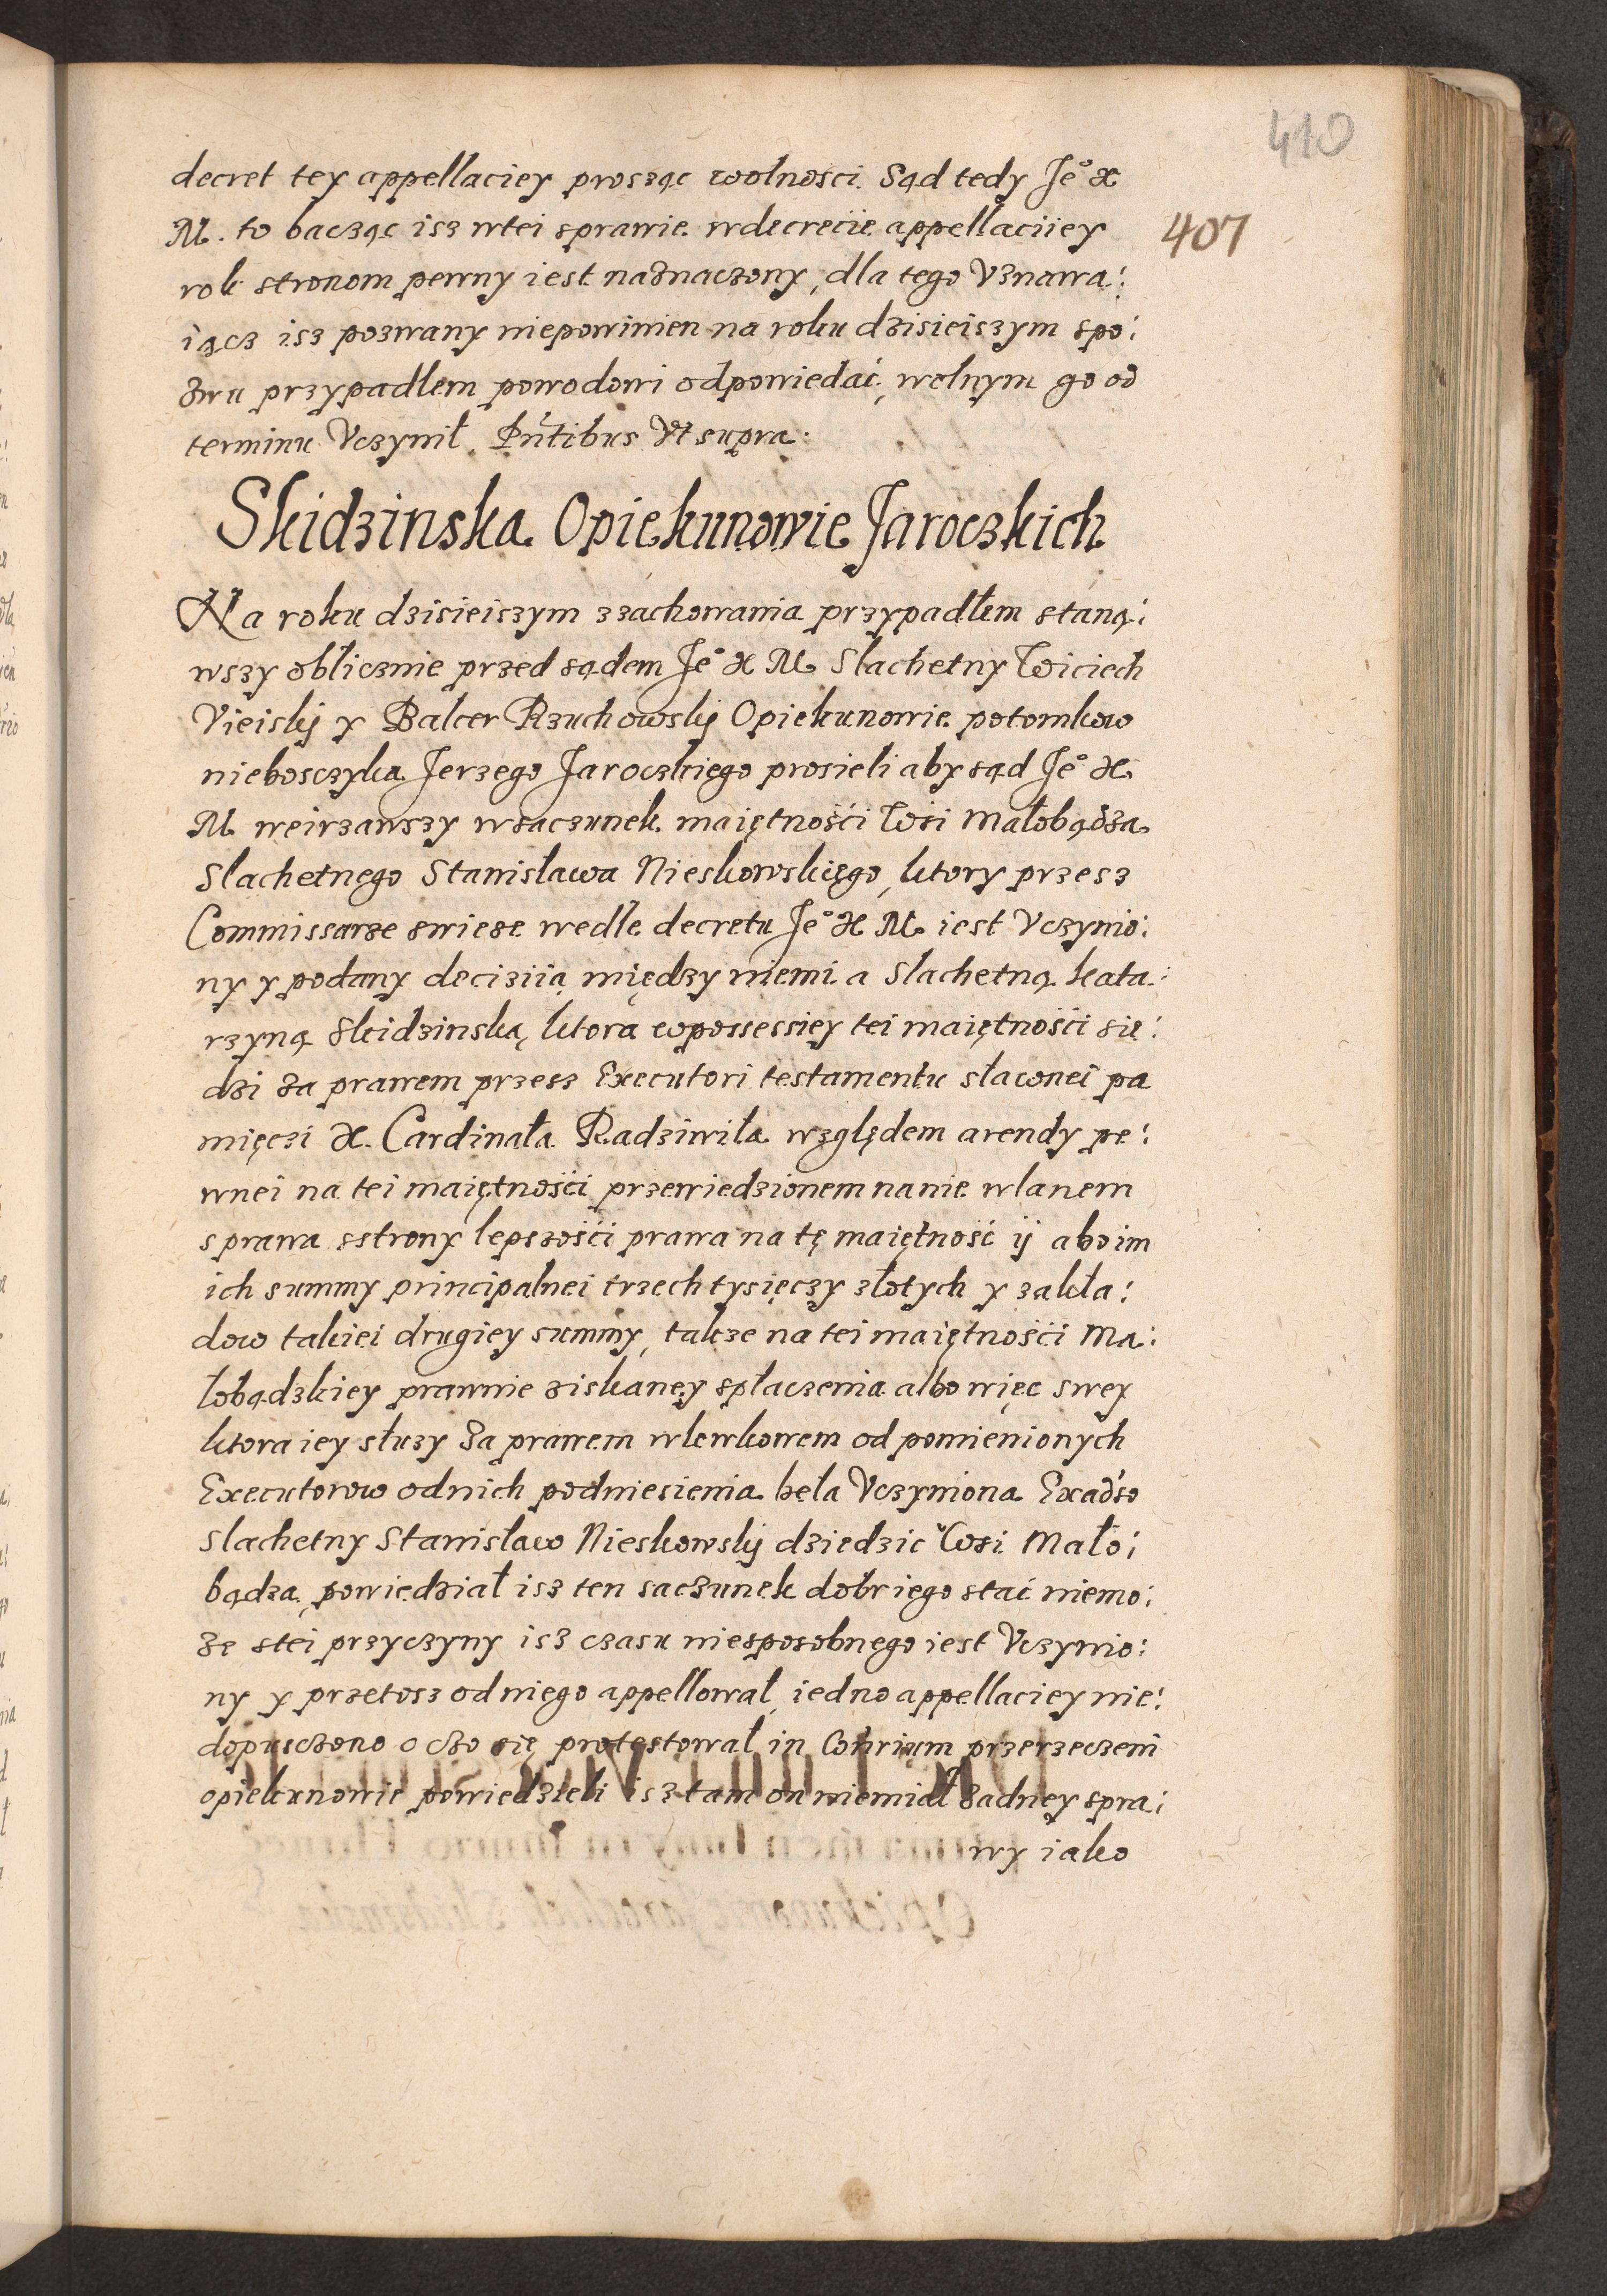 410
decret tey appellaciey prosząc wolnosci. Sąd tedy Je° X
M. to bacząc isz wtei sprawie wdecrecie appellaciiey
407
rok stronom pewny iest naznaczony, dla tego Vznawa:
iącz isz pozwany niepowinien na roku dzisieiszym spo:
zwu przypadłem powodowi odpowiedać, wolnym go od
terminu Vczynił. Pntibus Vt supra.
Skidzinska Opiekunowie Jaroczkich
Na roku dzisieiszym zzachowania przypadłem staną:
wszy oblicznie przed sądem Je° X M Slachetny Woiciech
Vieiskÿ y Balcer Rzuchowskÿ Opiekunowie potomkow
nieboszczyka Jerzego Jaroczkięgo prosieli aby sąd Je° X
M weirzawszy wsaczunek maiętnośći Wsi Małobądza
Slachetnego Stanisława Nieskowskięgo, ktory przesz
Commissarze swieze wedle decretu Je° X M iest Vczynio:
ny y podany deciziią między niemi a Slachetną kata:
rzyną Skidzinską, ktora wpossessiey tei maiętnośći sie:
dzi za prawem przesz Executori testamentu słavonei pa
mięczi X. Cardinała Radziwiła względem arendy pe:
wnei na tei maiętnośći przewiedzionem nanie wlanem
sprawa sstrony lepszośći prawa na tę maiętność ij abo im
ich summy principalnei trzech tysięczy złotych y zakła:
dow takiei drugiey summy, takze na tei maiętnośći Ma:
łobądzkiey prawnie ziskanęy spłaczenia albo więc swey
ktora iey służy za prawem wlewkowem od pomienionych
Executorow odnich podniesienia beła Vczyniona Exadso
slachetny Stanisław Nieskowskÿ dziedzic Wsi Mało:
bądza, powiedział isz ten saczunek dobr iego stać niemo:
ze stei przyczyny isz czasu niesposobnego iest Vczynio:
ny y przetosz odniego appellował, iedno appellaciey nie:
dopusczono o czo się protestował in Conrium przerzeczeni
opiekunowie powiedzieli isz tam on niemiał zadney spra:
wy iako